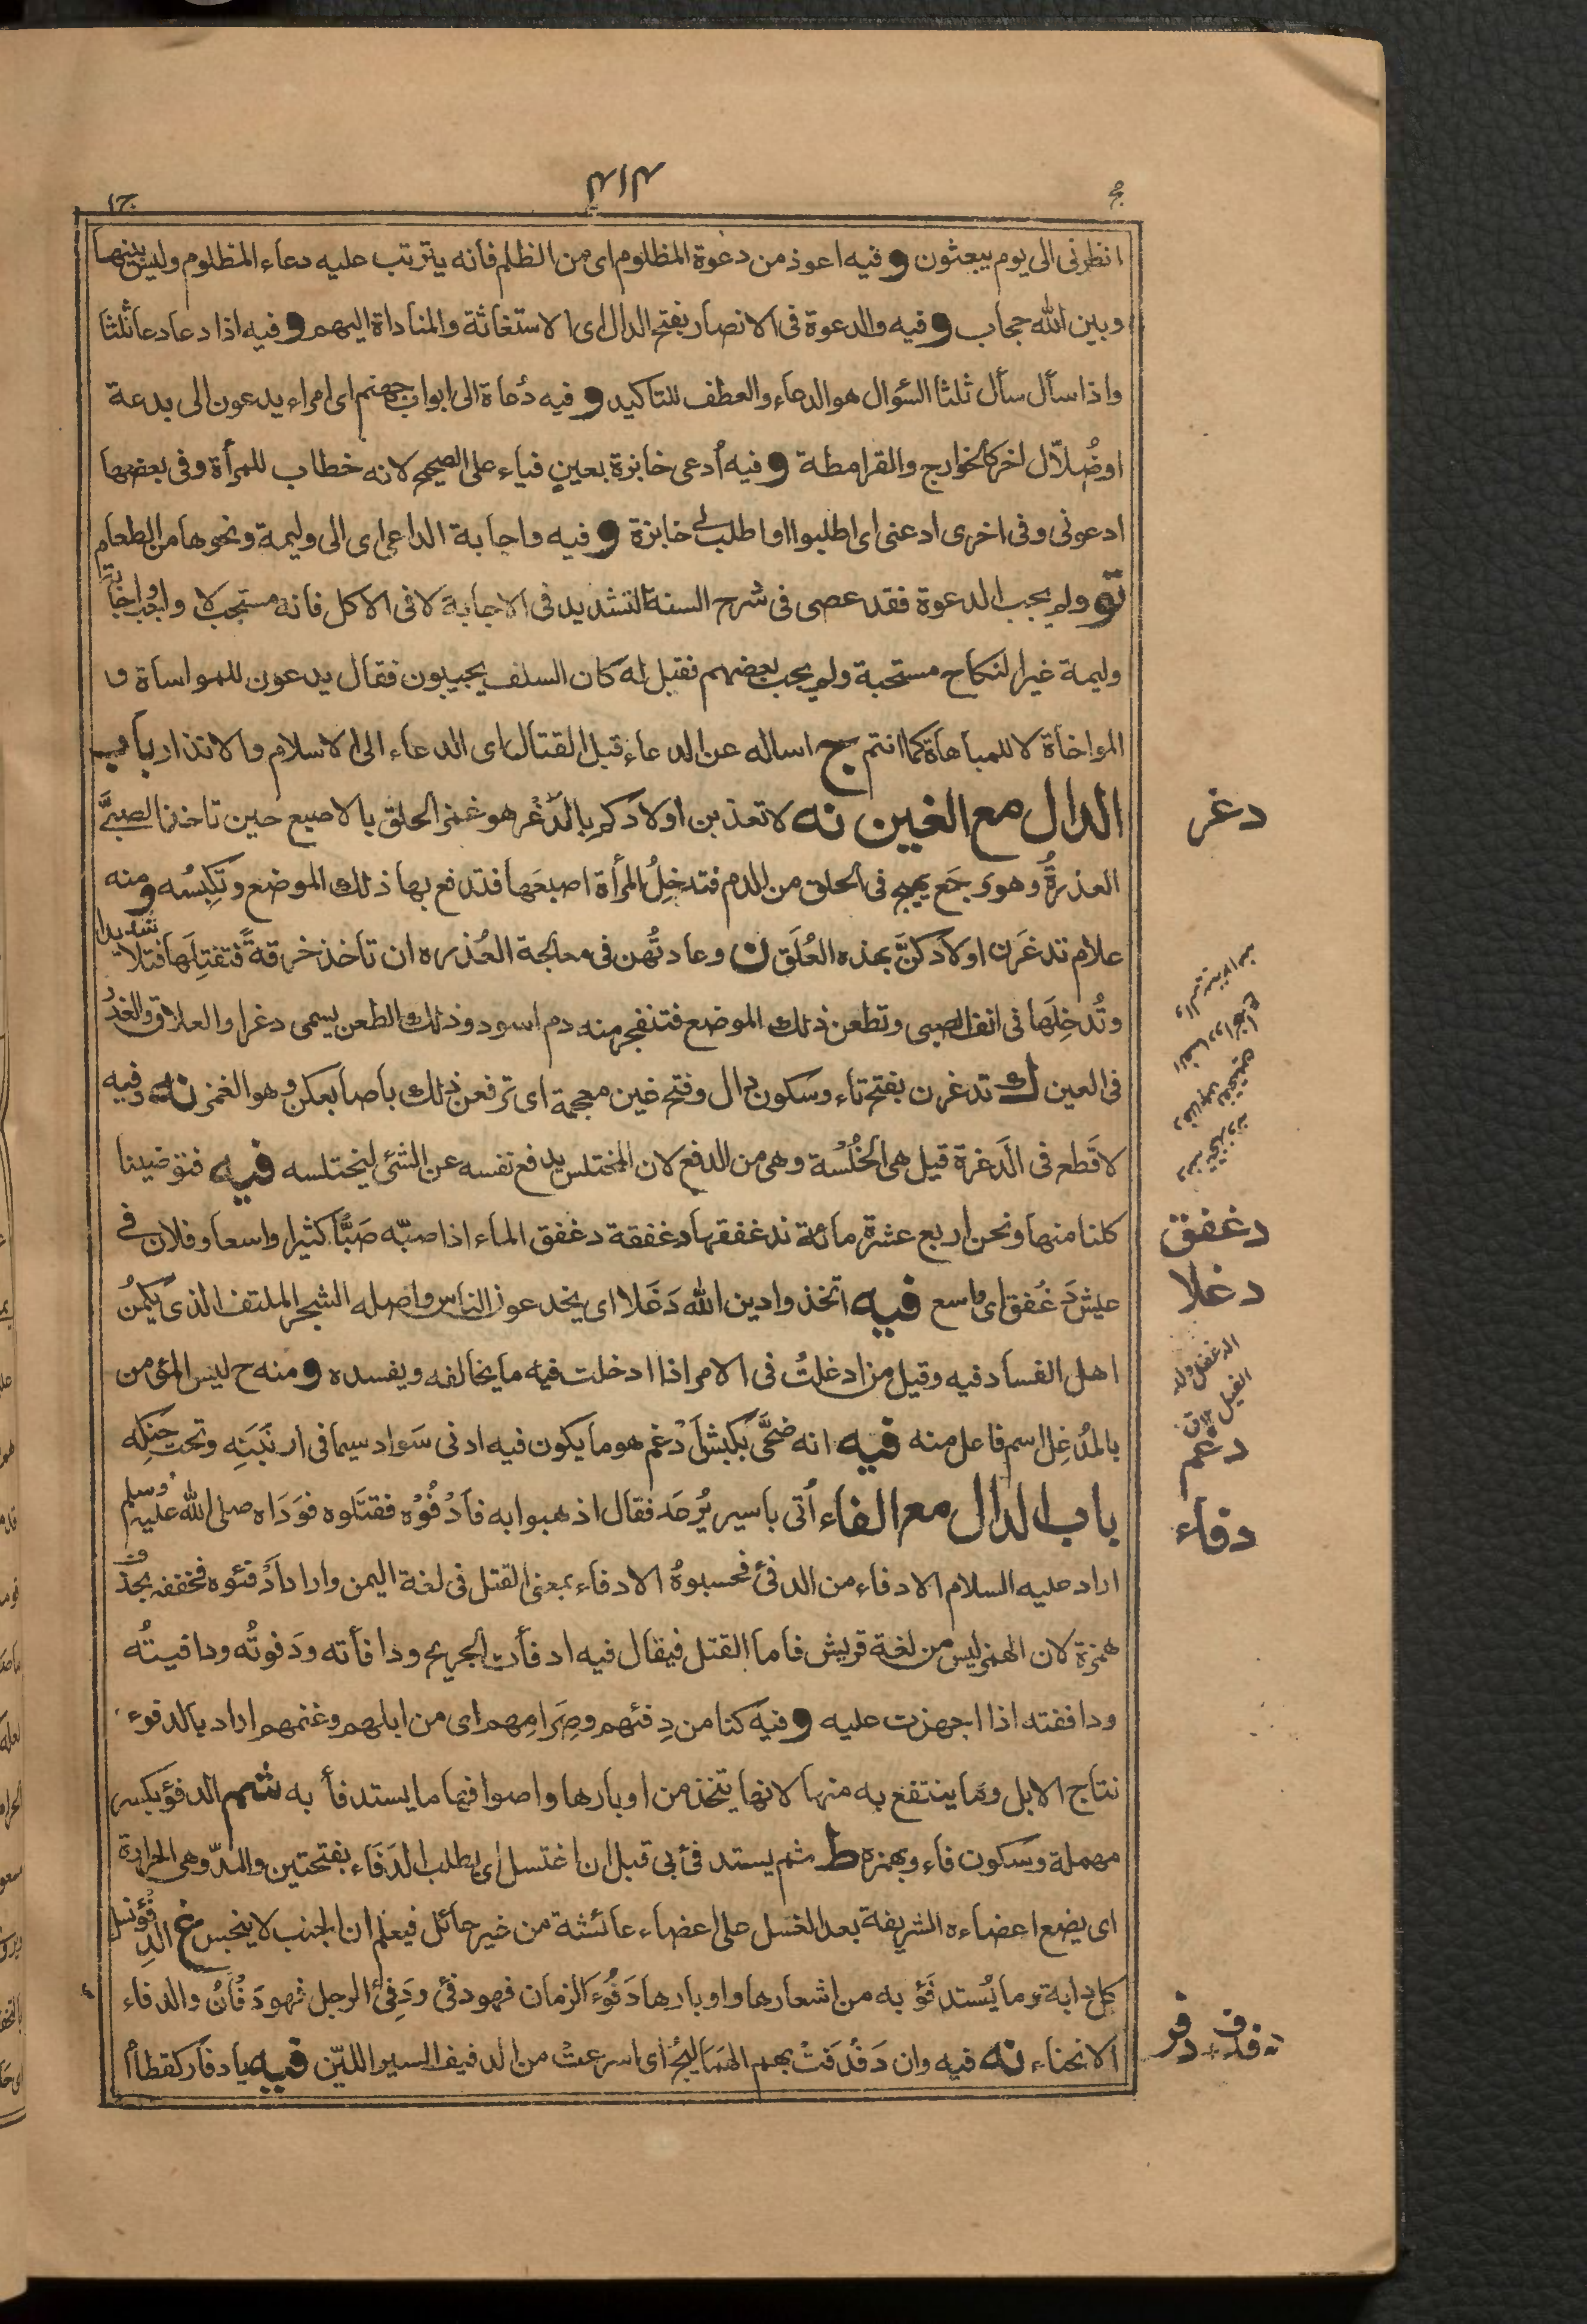 ج ١
انظرنى الى يوم يبعثون و فيه اعوذ من دعوة المظلوم اى من الظلم فانه يترتب عليه دعاء المظلوم وليس بينها
وبين الله حجاب و فيه والدعوة فى الانصار بفتح الدال اى الاستغاثة والمناداة اليهم و فيه اذا دعا دعا ثلثا
واذا سأل سأل ثلثا السؤال هو الدعاء والعطف للتاكيد و فيه دُعاة الى ابواب جهنم اى امراء يدعون الى بدعة
او ضُلاّل اخر كالخوارج والقرامطة و فيه اُدعى خابزة بعينٍ فياء على الصحيح لانه خطاب للمرأة وفى بعضها
ادعونى وفى اخرى ادعنى اى اطلبوا او اطلب لى خابزة و فيه واجابة الداعى اى الى وليمة ونحوها من الطعام
تو ولم يجب الدعوة فقد عصى فى شرح السنة التشديد فى الاجابة لا فى الاكل فانه مستحب لا واجب واجابة
وليمة غير النكاح مستحبة ولم يجب بعضهم فقيل له كان السلف يجيبون فقال يدعون للمواساة و
المواخاة لا للمباهاة كما انتم ج اساله عن الدعاء قبل القتال اى الدعاء الى الاسلام والانذار باب
الدال مع الغين نه لا تعذبن اولادكم بالدَغْر هو غمز الحلق بالاصبع حين تاخذ الصبىَّ
العذرةُ وهو وَجَع يهيج فى الحلق من الدم فتدخِلُ المرأة اصبعَها فتدفع بها ذلك الموضع وتَكبِسُه ومنه
علام تدغَرَن اولادكنَّ بهذه العُلَق ن وعادتُهن فى معالجة العُذره ان تاخذ خرقةً فتفتِلَها فتلا شديدا
وتُدخِلَها فى انف الصبى وتطعن ذلك الموضع فتنفجر منه دم اسود وذلك الطعن يسمى دغرا والعلاق والعذر
فى العين ك تدغرن بفتح تاء وسكون دال وفتح غين معجمة اى ترفعن ذلك باصابعكن وهو الغمز نه وفيه
لا قَطع فى الدَغرة قيل هى الخُلْسة وهى من الدفع لان المختلس يدفع نفسه عن الشئ ليختلسه فيه فتوضينا
كلنا منها ونحن اربع عشرة مائة ندغفقها دغفقة دغفق الماء اذا صبّه صَبًّا كثيرا واسعا وفلان فى
عيش دَغْفق اى واسع فيه اتخذوا دين الله دَغَلا اى يخدعون الناس واصله الشجر الملتف الذى يَكْمُنُ
اهل الفساد فيه وقيل من ادغلتُ فى الامر اذا ادخلت فيه ما يخالفه ويفسده و منه ح ليس المؤمن
بالمُدغِل اسم فاعل منه فيه انه ضحَّى بكبش اَدْغم هو ما يكون فيه ادنى سَواد سيما فى ارنَبَتِه وتحت حنكِه
باب الدال مع الفاء اُتى باسير يُرعَد فقال اذهبوا به فاَدْفُوْه فقتَلوه فوَدَاه صلى الله عليه وسلم
اراد عليه السلام الادفاء من الدفئ فحسبوهُ الادفاء بمعنى القتل فى لغة اليمن واراد اَدْفئوه فخففه بحذف
همزة لان الهمز ليس من لغة قريش فاما القتل فيقال فيه ادفأت الجريح ودافأته ودَفوتُه ودافيتُه
ودافقته اذا اجهزت عليه و فيه كنا من دِفئهم وصِرَامِهم اى من ابلهم وغنمهم اراد بالدفوء
نتاج الابل وما ينتفع به منها لانها يتخذ من اوبارها واصوافها ما يستدفأ به شم الدفؤ بكسر
مهملة وسكون فاء وبهمزه ط ثم يستدفئ بى قبل ان اغتسل اى يطلب الدَفَاء بفتحتين والمدّ وهى الحرارة
اى يضع اعضاءه الشريفة بعد الغسل على اعضاء عائشة من غير حائل فيعلم ان الجنب لا ينجس غ الدِفْؤ نسل
كل دابة وما يُستدفَؤ به من اشعارها واوبارها دَفُوءَ الزمان فهو دفئ ودَفِئ الرجل فهو دَفْآنُ والدفاء
الانحناء نه فيه وان دَفْدَفتْ بهم الهَمَاليْجُ اى اسرعتْ من الدفيف السير الليّن فيه يا دفار كقطام أ
دغر
دغفق
دغلا
دغم
دفاء
دفدف
دفر